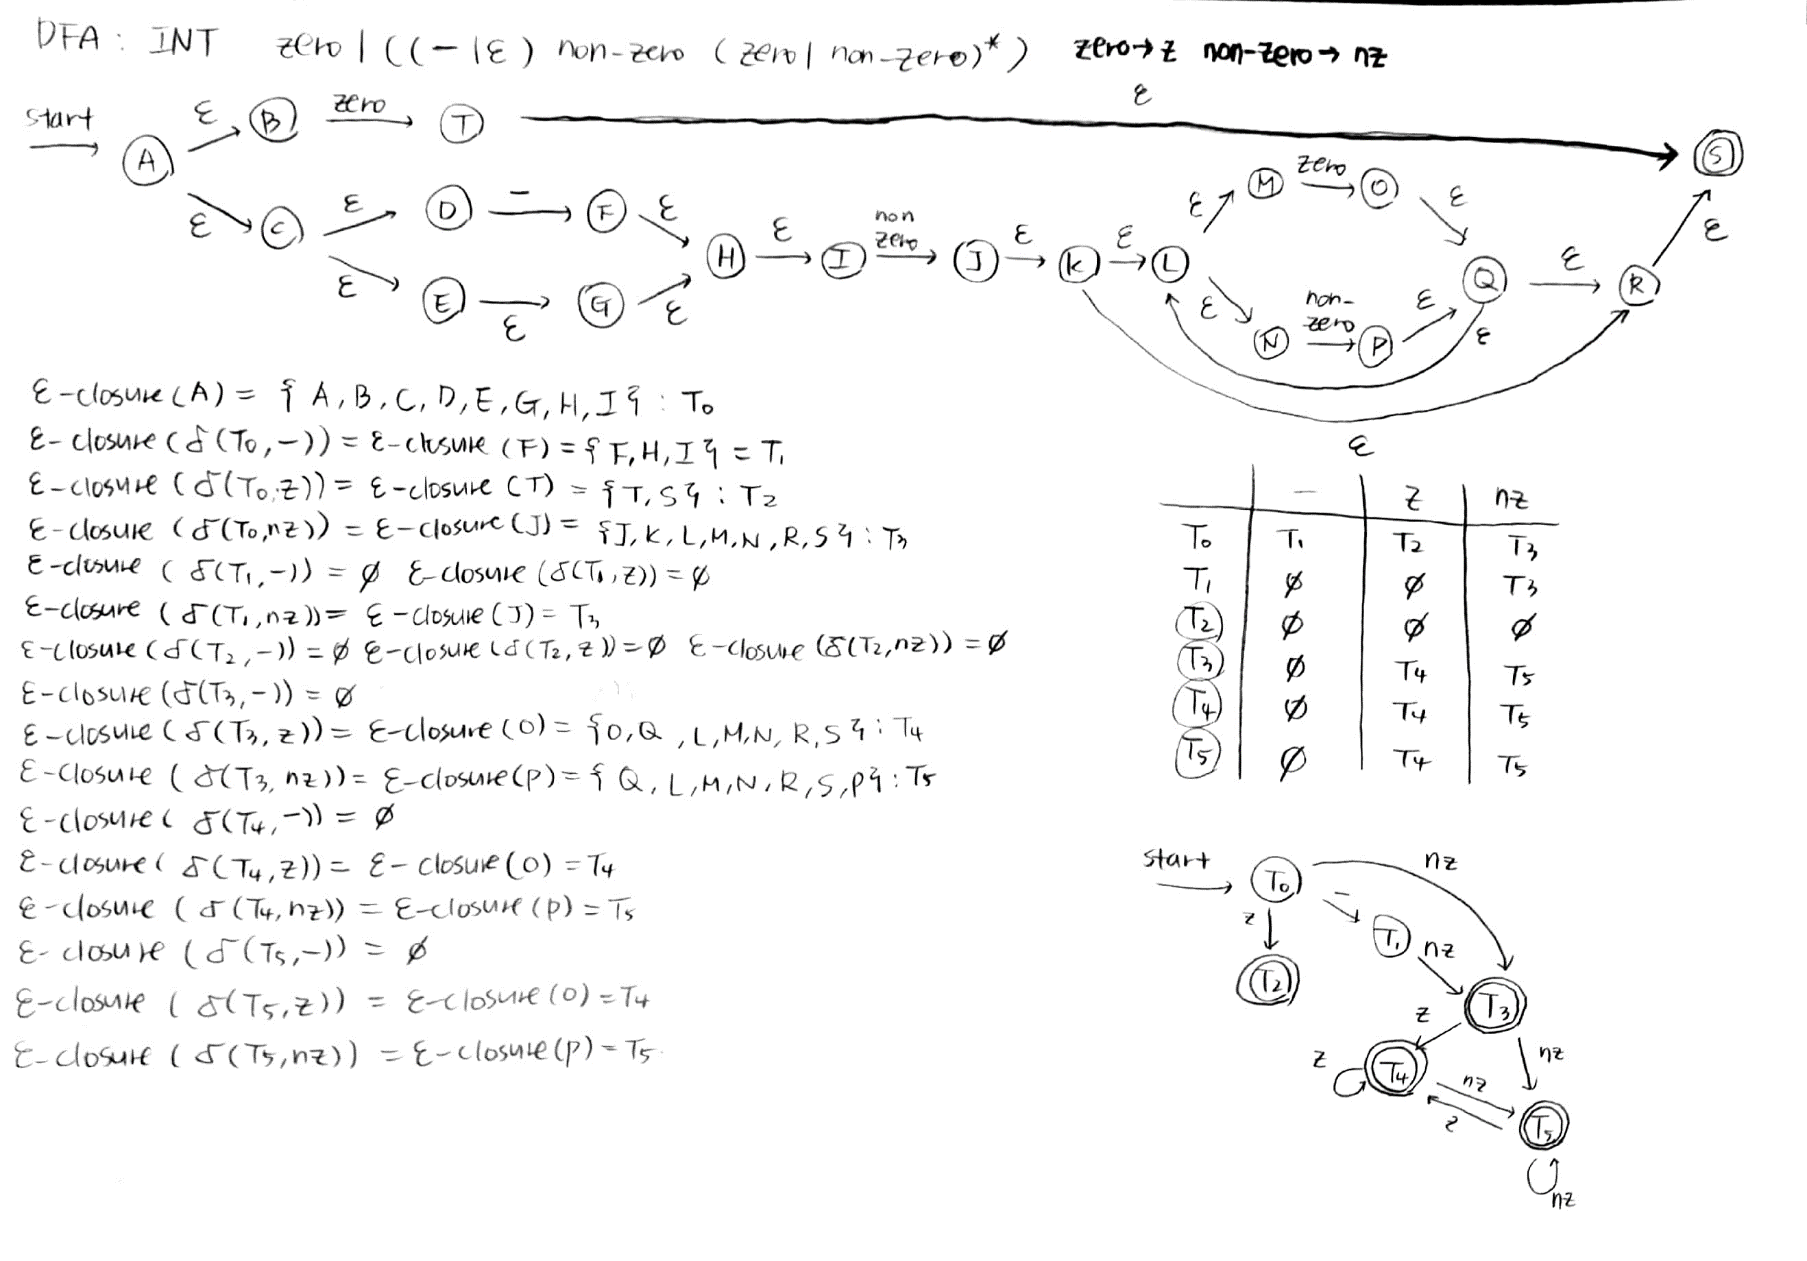 DFA : INT zero | ((-|ε) non-zero (zero | non-zero)*) zero→z non-zero→nz
start A ε B zero T ε S
ε C ε D - F ε H ε I non zero J ε K ε L ε M zero O ε Q ε R ε
ε E ε G ε ε N non-zero P ε ε
ε
ε-closure(A) = { A, B, C, D, E, G, H, I } : T0
ε-closure(δ(T0,-)) = ε-closure(F) = {F, H, I} = T1
ε-closure(δ(T0,z)) = ε-closure(T) = {T, S} : T2
ε-closure(δ(T0,nz)) = ε-closure(J) = {J, K, L, M, N, R, S} : T3
ε-closure(δ(T1,-)) = ∅ ε-closure(δ(T1,z)) = ∅
ε-closure(δ(T1,nz)) = ε-closure(J) = T3
ε-closure(δ(T2,-)) = ∅ ε-closure(δ(T2,z)) = ∅ ε-closure(δ(T2,nz)) = ∅
ε-closure(δ(T3,-)) = ∅
ε-closure(δ(T3,z)) = ε-closure(O) = {O, Q, L, M, N, R, S} : T4
ε-closure(δ(T3,nz)) = ε-closure(P) = {Q, L, M, N, R, S, P} : T5
ε-closure(δ(T4,-)) = ∅
ε-closure(δ(T4,z)) = ε-closure(O) = T4
ε-closure(δ(T4,nz)) = ε-closure(P) = T5
ε-closure(δ(T5,-)) = ∅
ε-closure(δ(T5,z)) = ε-closure(O) = T4
ε-closure(δ(T5,nz)) = ε-closure(P) = T5
- z nz
T0 T1 T2 T3
T1 ∅ ∅ T3
T2 ∅ ∅ ∅
T3 ∅ T4 T5
T4 ∅ T4 T5
T5 ∅ T4 T5
start T0 nz
z - T1 nz
T2 T3
z nz
z T4 nz
z T5
nz